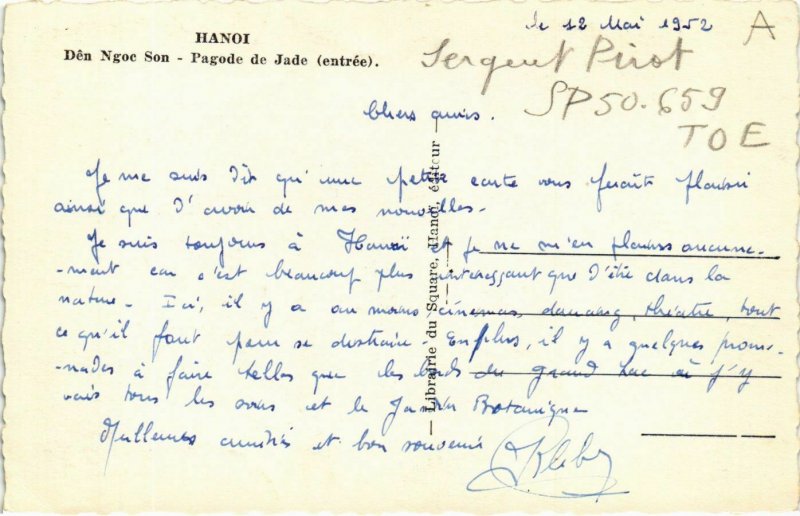 HANOI
Dên Ngoc Son - Pagode de Jade (entrée).
le 12 Mai 1952
A
Sergent Pirot
SP 50.659
TOE
Chers amis.
Je me suis dit qu'une petite carte vous ferait plaisir
ainsi que d'avoir de mes nouvelles.
Je suis toujours à Hanoï et je ne m'en plains aucune-
-ment car c'est beaucoup plus intéressant que d'être dans la
nature. Ici, il y a au moins cinémas, dancing, théatre, tout
ce qu'il faut pour se distraire. En plus, il y a quelques prome-
-nades à faire telles que les bords du grand Lac où j'y
vais tous les soirs et le Jardin Botanique
Meilleures amitiés et bon souvenir
Librairie du Square, Hanoï, éditeur